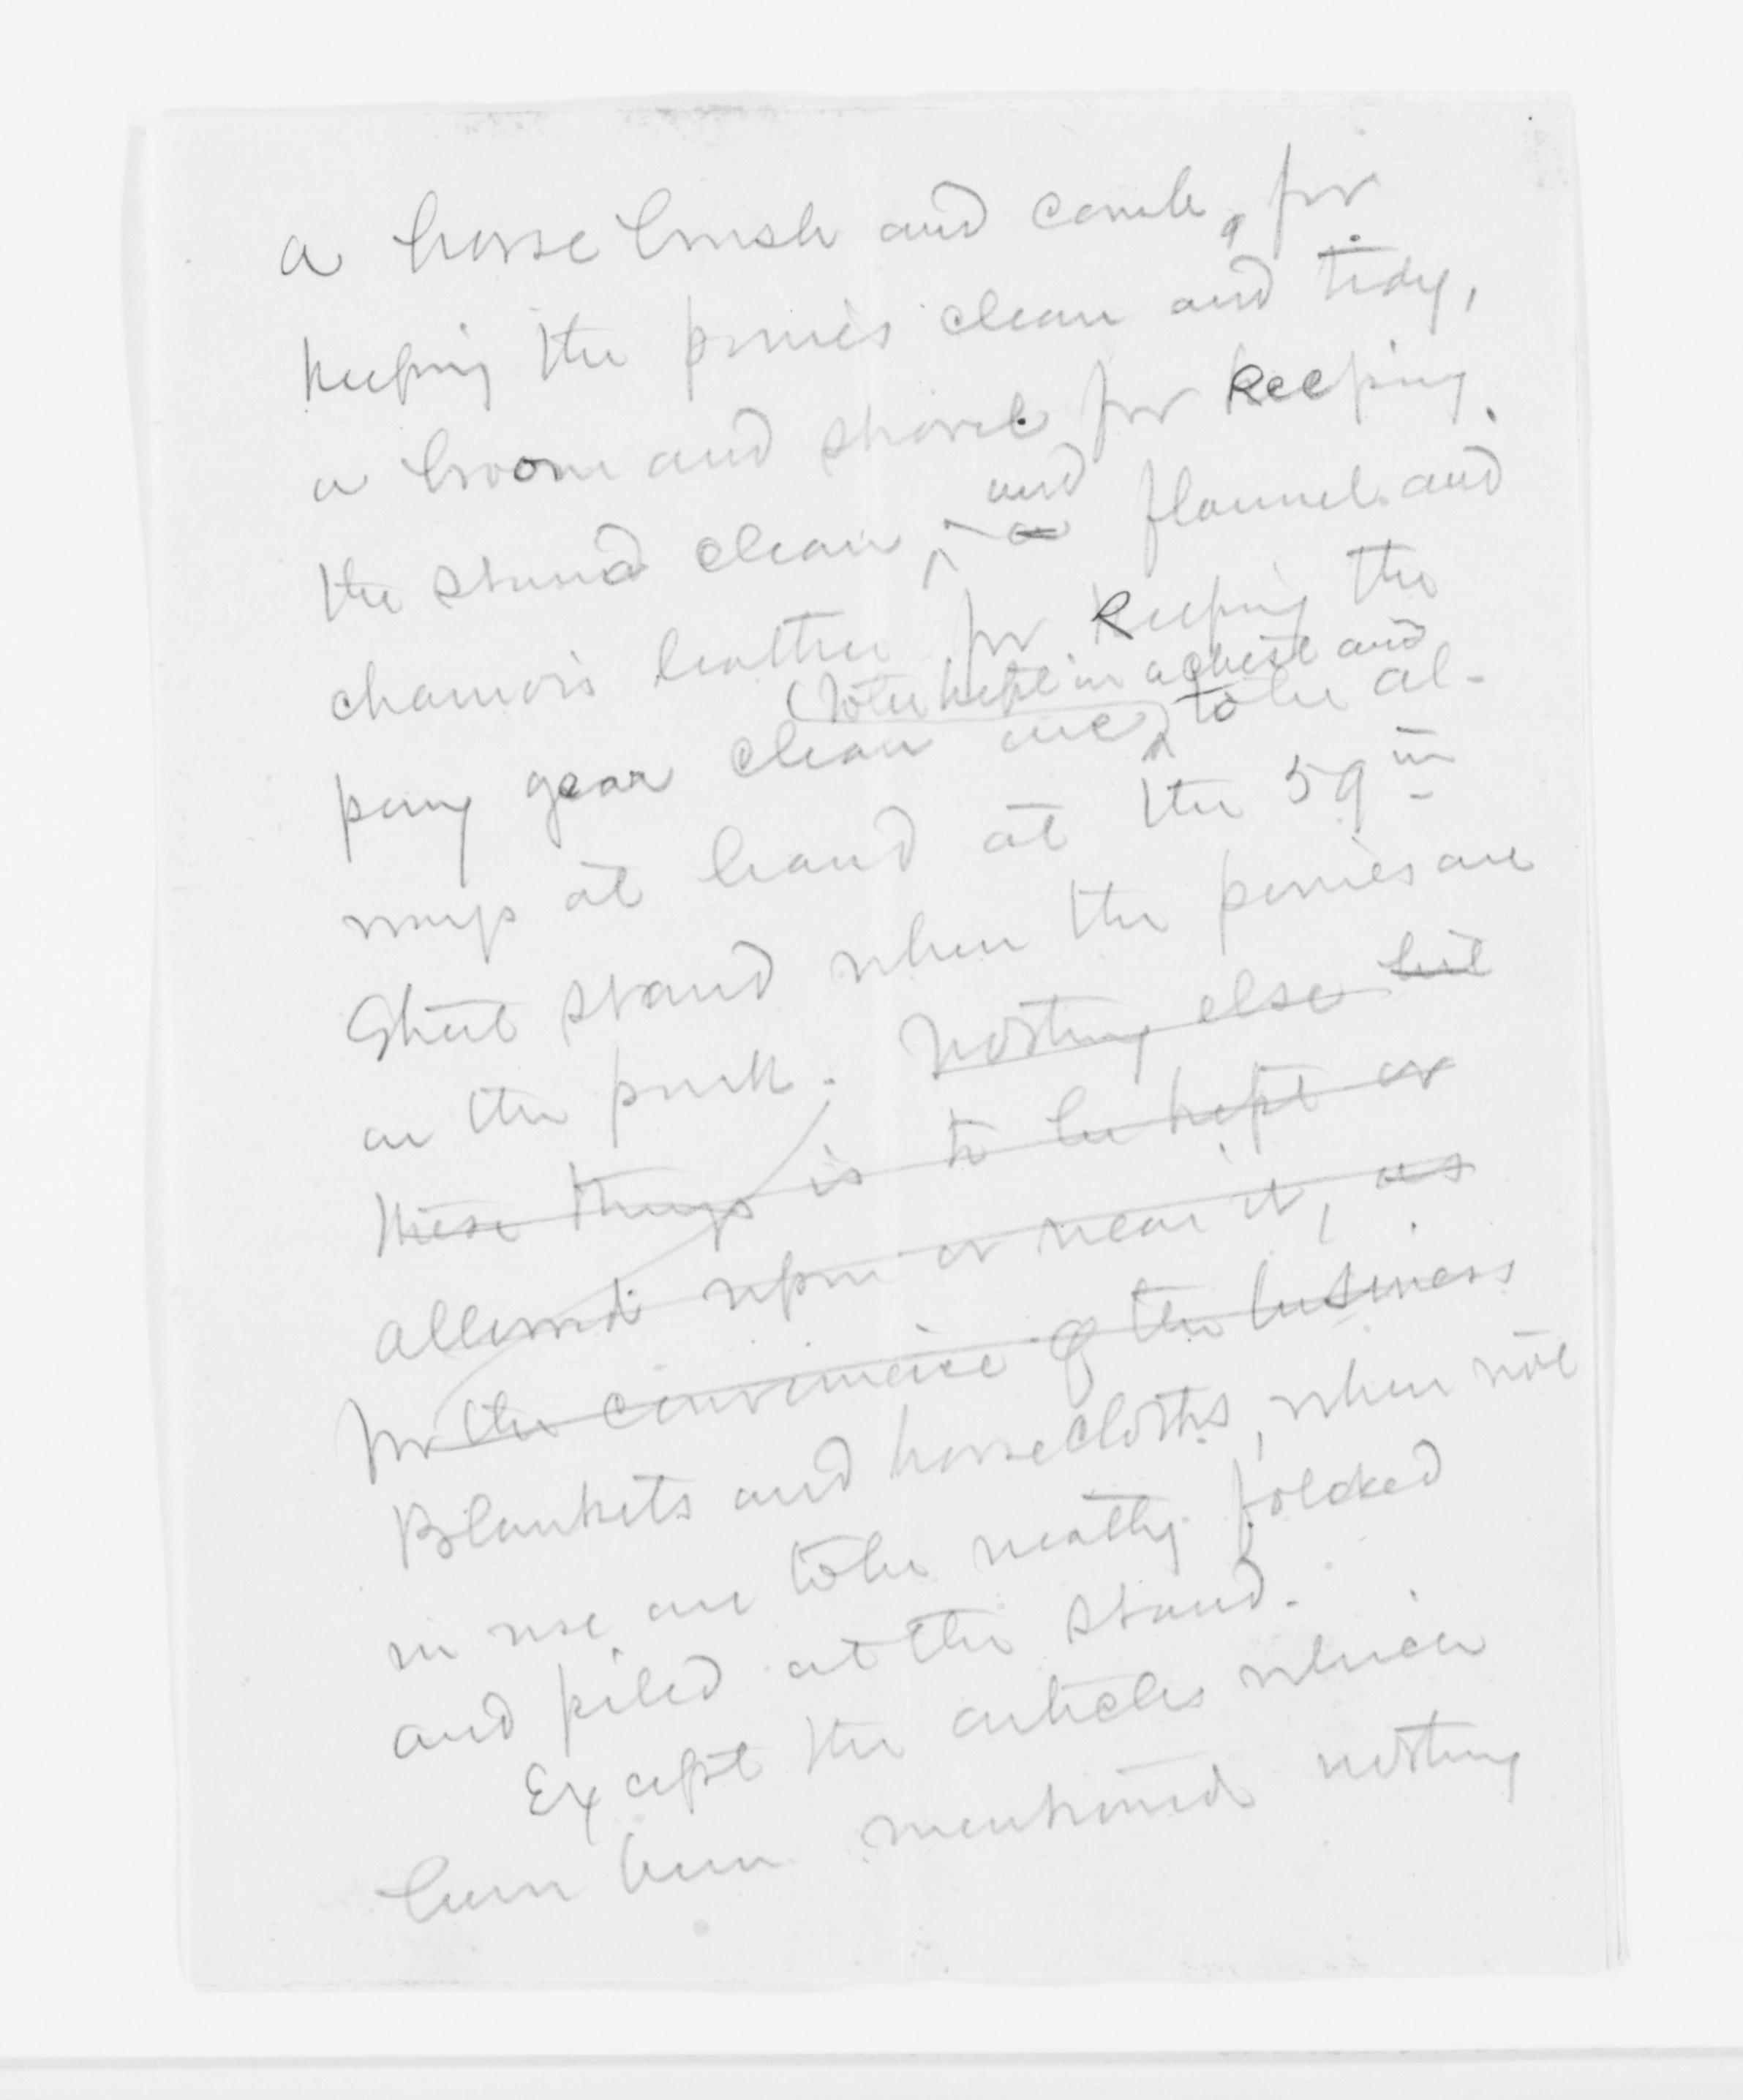 a horse brush and comb, for
keeping the ponies clean and tidy,
a broom and shovel for keeping
the stand clean, and a flannel and
chamois leather for keeping the
(to be kept in a chest and
pony gear clean are to be al-
ways at hand at the 59th
Street stand when the ponies are
on the park. Nothing else but
these things is to be kept or
allowed upon or near it, as
for the convenience of the business
Blankets and horsecloths, when not
in use are to be neatly folded
and piled at the stand.
Except the articles which
have been mentioned nothing